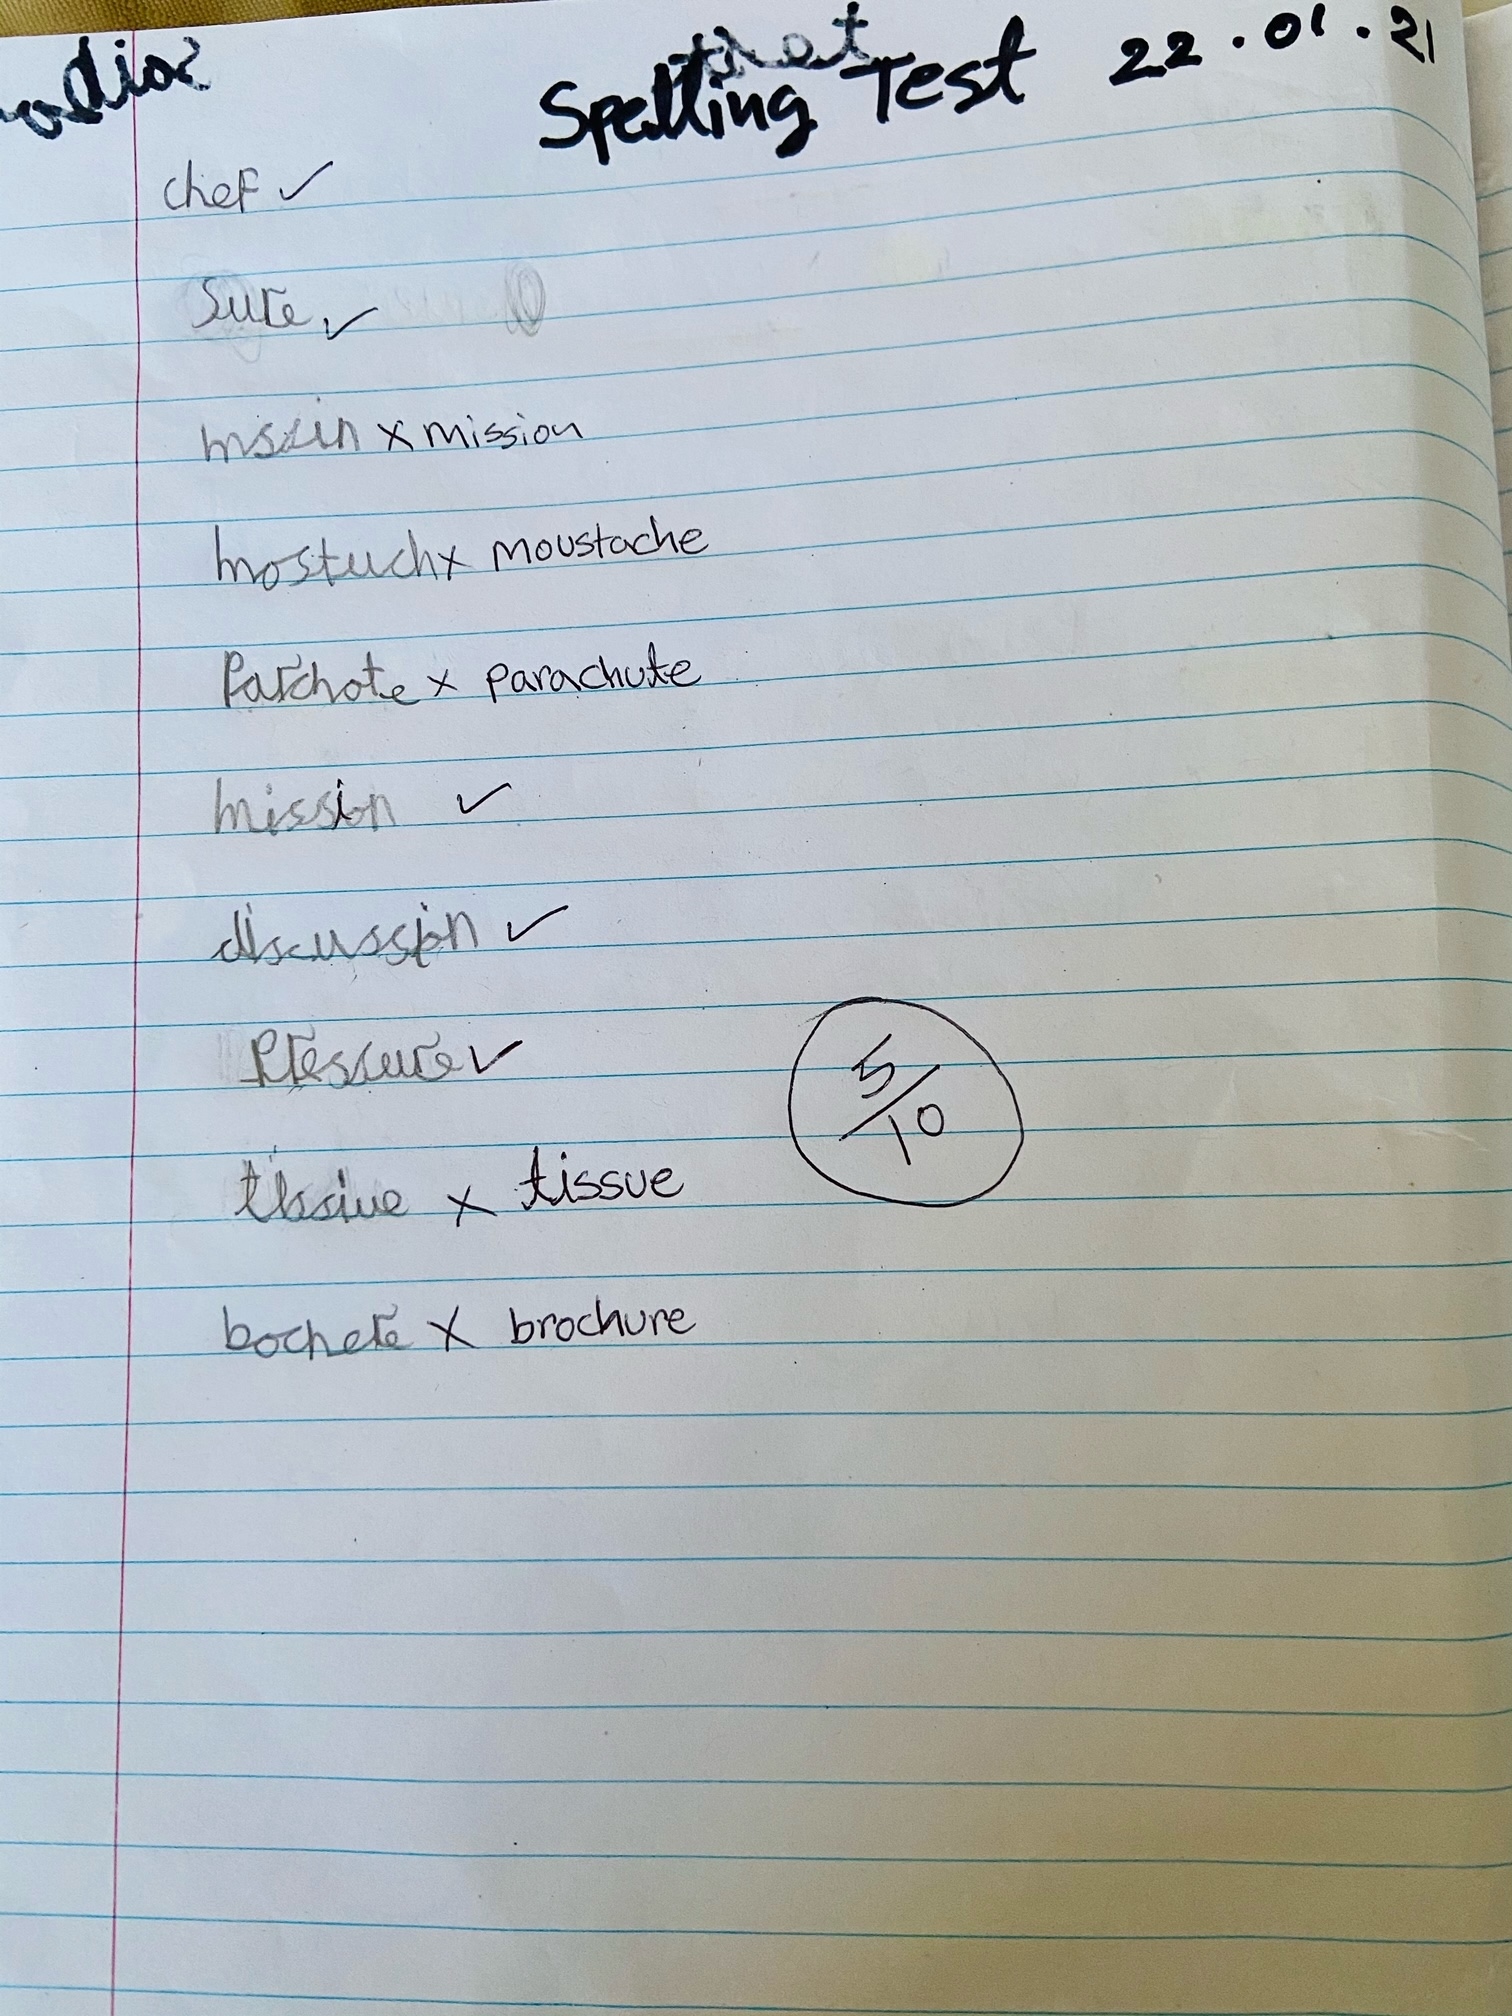 Spelling Test 22.01.21
chef ✓
sure ✓
mscin x mission
mostuch x moustache
Parchote x parachute
mission ✓
discussion ✓
Pressure ✓
tissiue x tissue
5/10
bochere x brochure